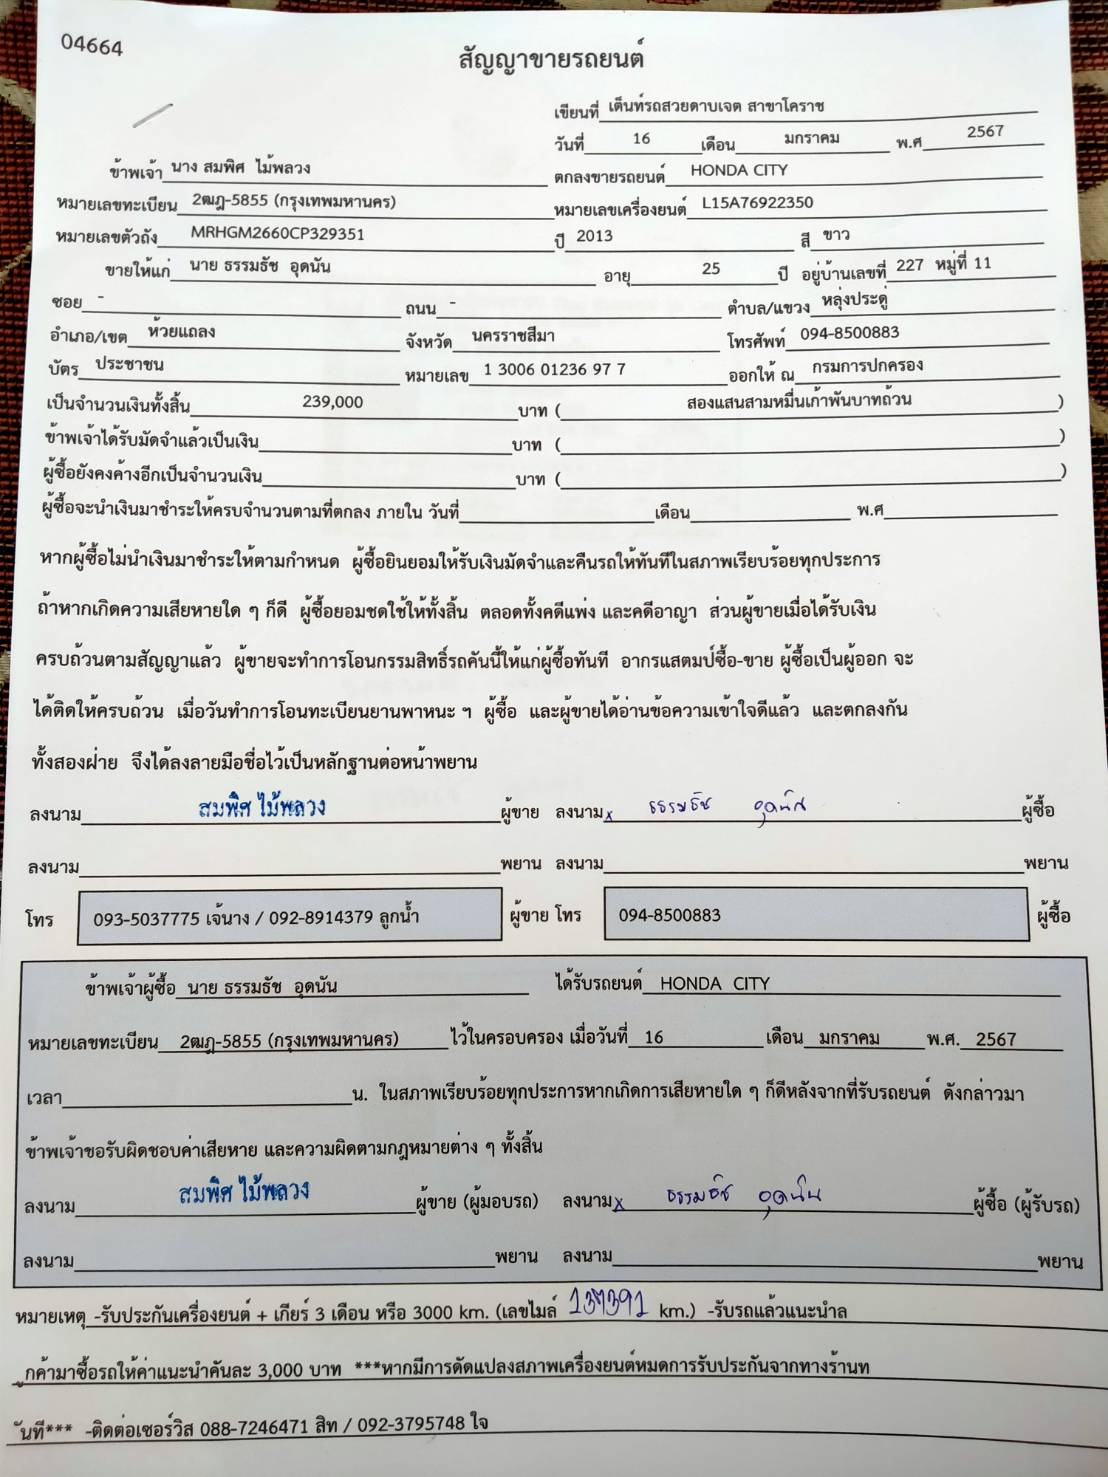 04664
สัญญาขายรถยนต์
เขียนที่ เต็นท์รถสวยดาบเจต สาขาโคราช
วันที่ 16 เดือน มกราคม พ.ศ 2567
ข้าพเจ้า นาง สมพิศ ไม้พลวง ตกลงขายรถยนต์ HONDA CITY
หมายเลขทะเบียน 2ฒฎ-5855 (กรุงเทพมหานคร) หมายเลขเครื่องยนต์ L15A76922350
หมายเลขตัวถัง MRHGM2660CP329351 ปี 2013 สี ขาว
ขายให้แก่ นาย ธรรมธัช อุดนัน อายุ 25 ปี อยู่บ้านเลขที่ 227 หมู่ที่ 11
ซอย - ถนน - ตำบล/แขวง หลุ่งประดู่
อำเภอ/เขต ห้วยแถลง จังหวัด นครราชสีมา โทรศัพท์ 094-8500883
บัตร ประชาชน หมายเลข 1 3006 01236 97 7 ออกให้ ณ กรมการปกครอง
เป็นจำนวนเงินทั้งสิ้น 239,000 บาท ( สองแสนสามหมื่นเก้าพันบาทถ้วน )
ข้าพเจ้าได้รับมัดจำแล้วเป็นเงิน บาท ( )
ผู้ซื้อยังคงค้างอีกเป็นจำนวนเงิน บาท ( )
ผู้ซื้อจะนำเงินมาชำระให้ครบจำนวนตามที่ตกลง ภายใน วันที่ เดือน พ.ศ
หากผู้ซื้อไม่นำเงินมาชำระให้ตามกำหนด ผู้ซื้อยินยอมให้รับเงินมัดจำและคืนรถให้ทันทีในสภาพเรียบร้อยทุกประการ
ถ้าหากเกิดความเสียหายใด ๆ ก็ดี ผู้ซื้อยอมชดใช้ให้ทั้งสิ้น ตลอดทั้งคดีแพ่ง และคดีอาญา ส่วนผู้ขายเมื่อได้รับเงิน
ครบถ้วนตามสัญญาแล้ว ผู้ขายจะทำการโอนกรรมสิทธิ์รถคันนี้ให้แก่ผู้ซื้อทันที อากรแสตมป์ซื้อ-ขาย ผู้ซื้อเป็นผู้ออก จะ
ได้ติดให้ครบถ้วน เมื่อวันทำการโอนทะเบียนยานพาหนะ ฯ ผู้ซื้อ และผู้ขายได้อ่านข้อความเข้าใจดีแล้ว และตกลงกัน
ทั้งสองฝ่าย จึงได้ลงลายมือชื่อไว้เป็นหลักฐานต่อหน้าพยาน
ลงนาม สมพิศ ไม้พลวง ผู้ขาย ลงนาม x ธรรมธัช อุดนัน ผู้ซื้อ
ลงนาม พยาน ลงนาม พยาน
โทร 093-5037775 เจ้นาง / 092-8914379 ลูกน้ำ ผู้ขาย โทร 094-8500883 ผู้ซื้อ
ข้าพเจ้าผู้ซื้อ นาย ธรรมธัช อุดนัน ได้รับรถยนต์ HONDA CITY
หมายเลขทะเบียน 2ฒฎ-5855 (กรุงเทพมหานคร) ไว้ในครอบครอง เมื่อวันที่ 16 เดือน มกราคม พ.ศ. 2567
เวลา น. ในสภาพเรียบร้อยทุกประการหากเกิดการเสียหายใด ๆ ก็ดีหลังจากที่รับรถยนต์ ดังกล่าวมา
ข้าพเจ้าขอรับผิดชอบค่าเสียหาย และความผิดตามกฎหมายต่าง ๆ ทั้งสิ้น
ลงนาม สมพิศ ไม้พลวง ผู้ขาย (ผู้มอบรถ) ลงนาม x ธรรมธัช อุดนัน ผู้ซื้อ (ผู้รับรถ)
ลงนาม พยาน ลงนาม พยาน
หมายเหตุ -รับประกันเครื่องยนต์ + เกียร์ 3 เดือน หรือ 3000 km. (เลขไมล์ 137391 km.) -รับรถแล้วแนะนำล
ูกค้ามาซื้อรถให้ค่าแนะนำคันละ 3,000 บาท ***หากมีการดัดแปลงสภาพเครื่องยนต์หมดการรับประกันจากทางร้านท
ันที*** -ติดต่อเซอร์วิส 088-7246471 สิท / 092-3795748 ใจ